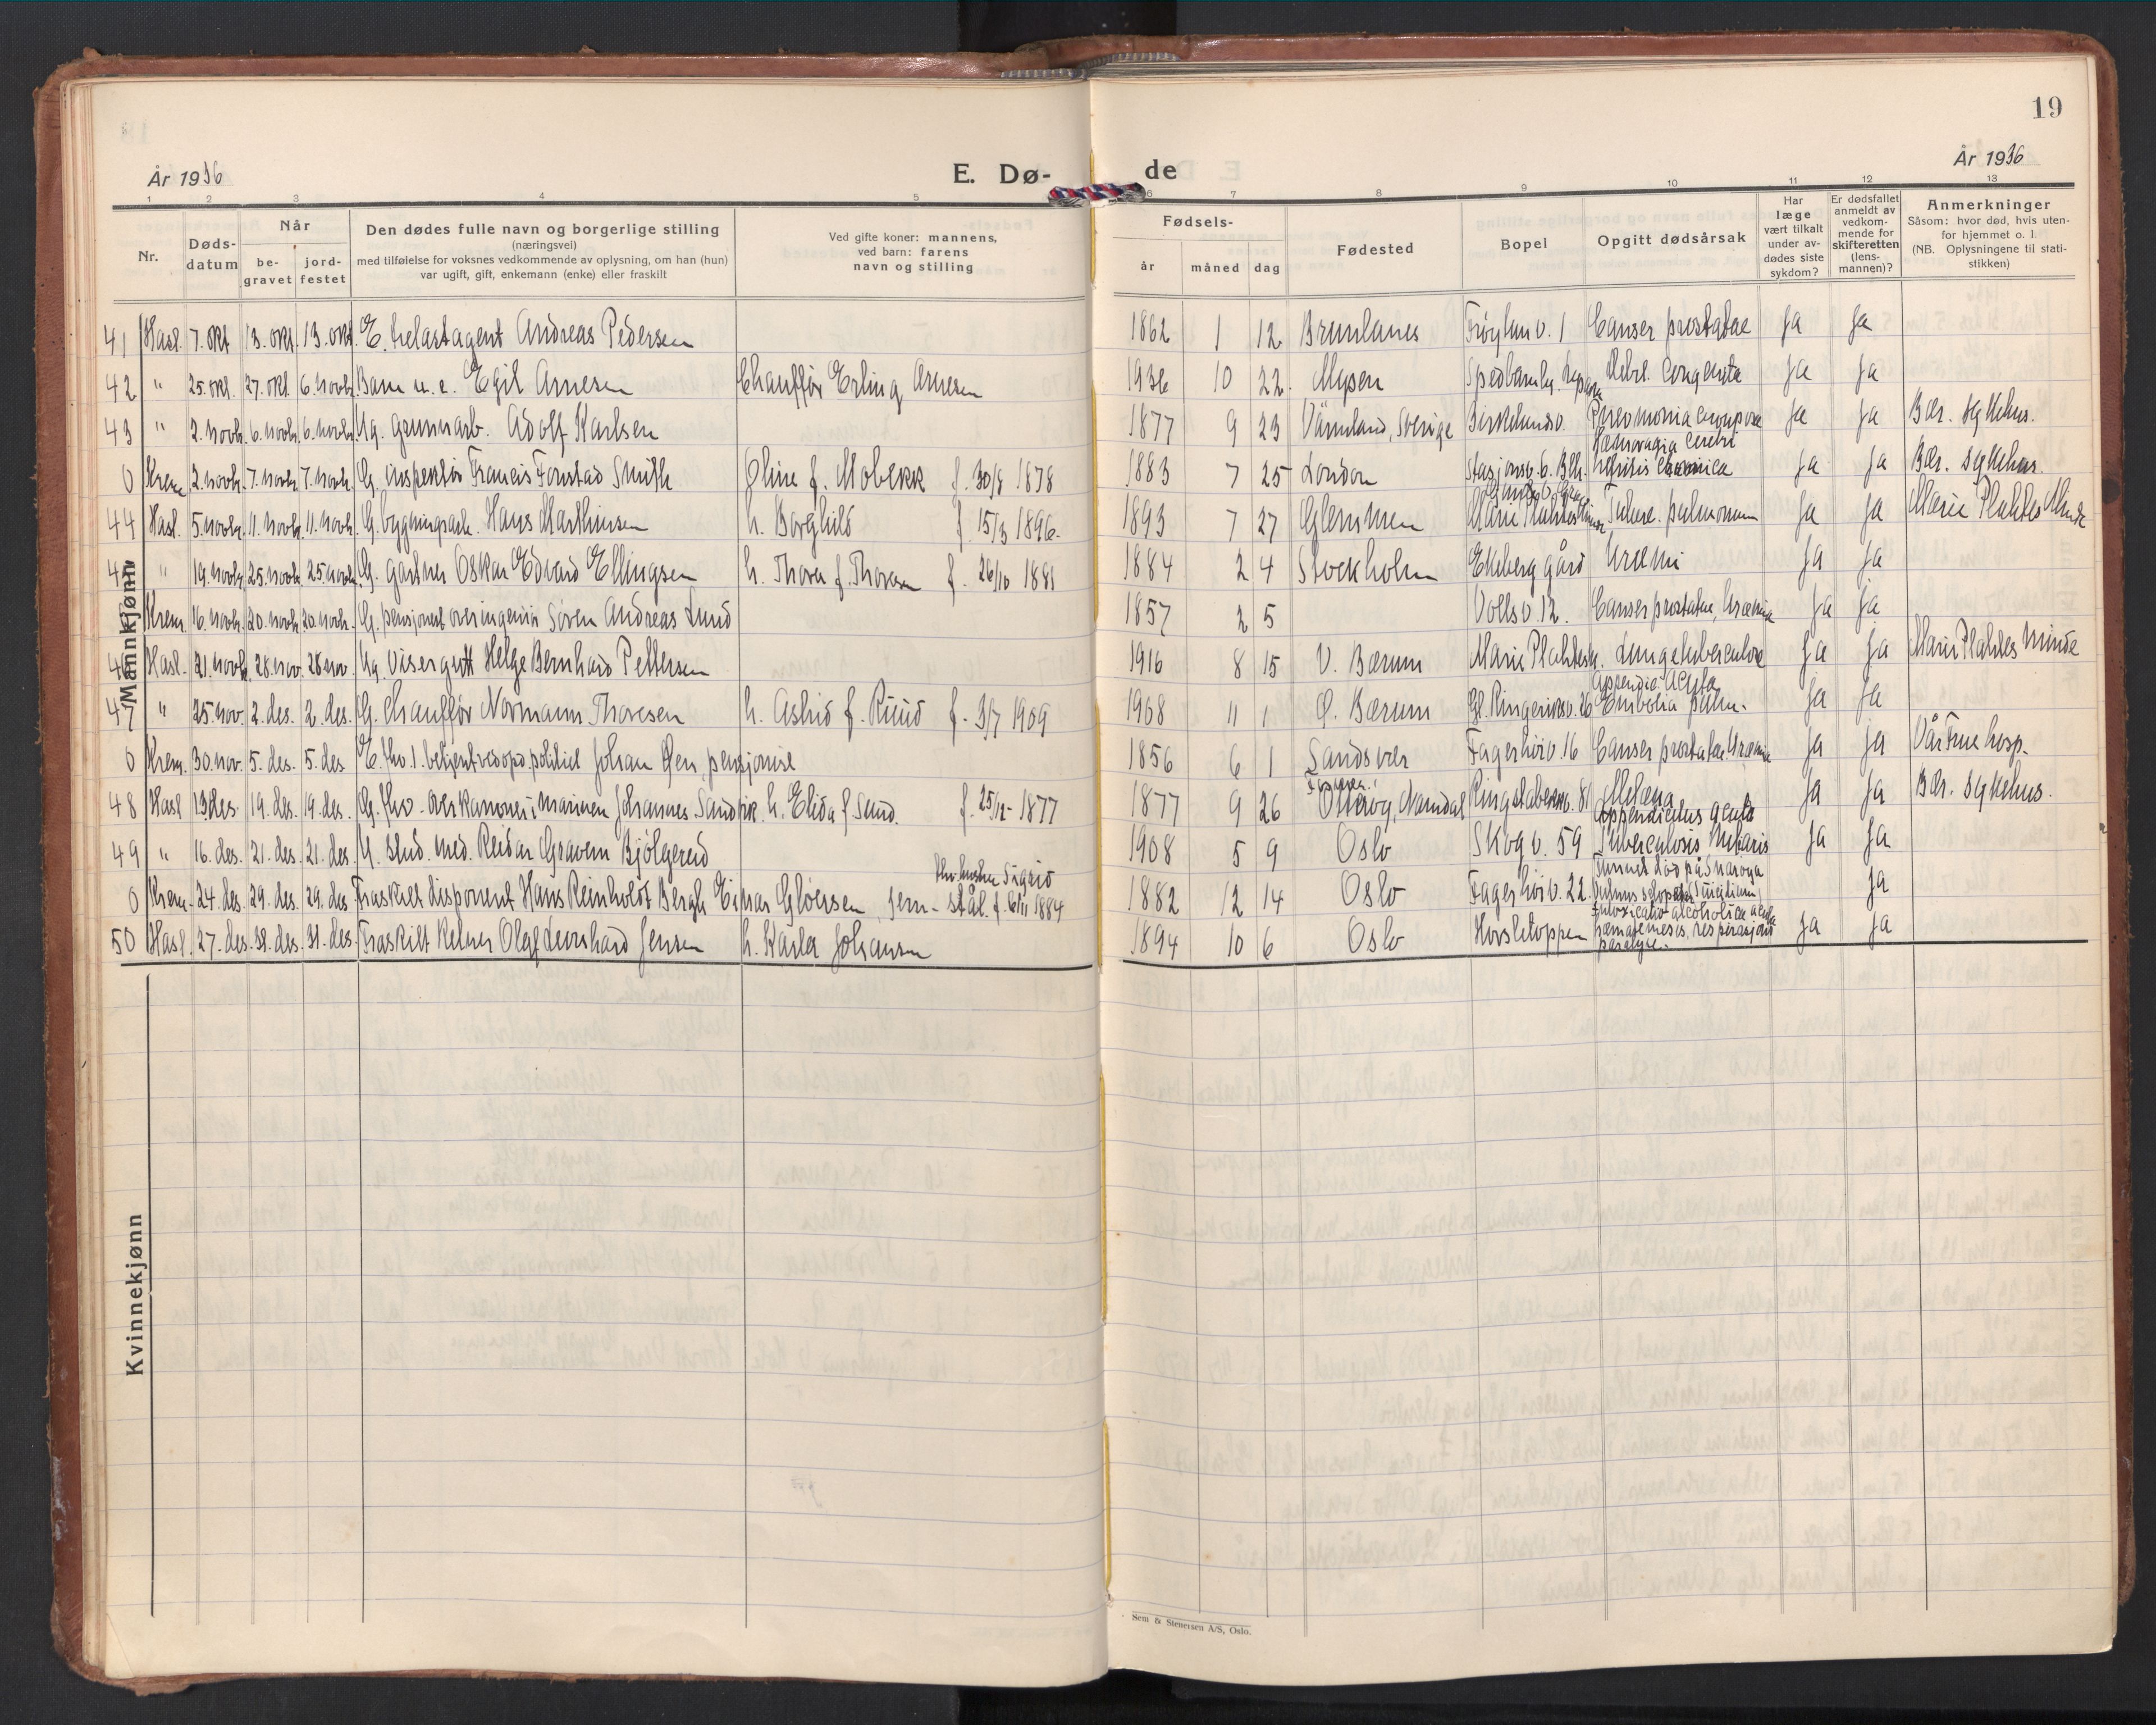 19
År 1936
E. Dø-
de
År 1936
1 2 3 4 5 6 7 8 9 10 11 12 13
Nr.
Døds-
datum
Når
be-
gravet
jord-
festet
Den dødes fulle navn og borgerlige stilling
(næringsvei)
med tilføielse for voksnes vedkommende av oplysning, om han (hun)
var ugift, gift, enkemann (enke) eller fraskilt
Ved gifte koner: mannens,
ved barn: farens
navn og stilling
Fødsels-
år måned dag
Fødested
Bopel
Opgitt dødsårsak
Har
læge
vært tilkalt
under av-
dødes siste
sykdom?
Er dødsfallet
anmeldt av
vedkom-
mende for
skifteretten
(lens-
mannen)?
Anmerkninger
Såsom: hvor død, hvis uten-
for hjemmet o. l.
(NB. Oplysningene til stati-
stikken)
Mannkjønn
41 Hasl. 7. okt 13. okt. 13. okt. E. Andreas Pedersen 1862 1 12 Brunlanes Frøylandv. 1 Canser prostatae ja ja
42 " 25. okt. 27. okt. 6. novb. Barn u. e. Egil Arnesen Chauffør Erling Arnesen 1936 10 22. Mysen Debil. Congenita ja ja
43 " 2. novb. 6. novb. 6. novb. Ug. grunnarb. Adolf Karlsen 1877 9 23 Värmland, Sverige Birkelundv. Pneomonia crouposa ja ja Bær. sykehus.
Hæmoragia cerebri
0 Krem 2. novb. 7. novb. 7. novb. G. inspektør Francis Fonstad Smith Oline f. Mobekk f. 30/8 1878 1883 7 25 London Stasjonsv. 6. Blk. nefritis cronica ja ja Bær. sykehus.
44 Hasl. 5. novb. 11. novb. 11. novb. G. bygningsarb. Hans Marthinsen h. Borghild f. 15/3 1896. 1893 7 27 Glemmen Marie Plahtes Minde Tuberc. pulmonum ja ja Marie Plahtes Minde
45 " 19. novb. 25. novb. 25. novb. G. gartner Oskar Edvard Ellingsen h. Thora f. Thoresen f. 26/10 1881 1884 2 4 Stockholm Ekeberg gård Uræmi ja ja
0 Krem. 16. novb. 20. novb. 20. novb. G. pensjonert overingeniør Søren Andreas Lund 1857 2 5 Vollsv. 12. Canser prostatae, Uræmia ja ja
46 Hasl. 21. novb. 28. nov. 28 nov. Ug. visergutt Helge Bernhard Pettersen 1916 8 15 V. Bærum Marie Plahtes M. Lungetuberculose ja ja Marie Plahtes Minde
Appendic. Acuta
47 " 25. nov. 2. des. 2. des. G. chauffør Normann Thoresen h. Astrid f. Ruud f. 3/7 1909 1908 11 1 Ø. Bærum Gl. Ringeriksv. 26 Embolia pulm. ja ja
0 Krem. 30. nov. 5. des. 5. des E. fhv. 1. betjent ved opd. politiet Johan Øen, pensjonist 1856 6 1 Sandsvær Fagerhøiv. 16 Canser prostatae. Uræmia ja ja Vår Frue hosp.
48 Hasl 13 des. 19. des. 19. des. G. fhv. overkanoner i marinen Johannes Sandvik. h. Elida f. Sund. f. 25/12 1877 1877 9 26 Otterøy, Namdal Ringstabekkv. 81 Melæna ja ja Bær. sykehus.
Appendicitus acuta
49 " 16. des. 21. des. 21. des. U. stud. med. Reidar Gravem Bjølgerud 1908 5 9 Oslo Skogv. 59 Tuberculosis Miliaris ja ja
fhv. hustru Sigrid
Funnet død på Snarøya
0 Krem. 24. des. 29. des. 29. des. Fraskilt disponent Hans Reinholdt Bergh Einar Gløersen, jern- stål. f. 6/11 1884 1882 12 14 Oslo Fagerhøiv. 22. Vulnus sclopetar. Suicidium ja
Intoxicatio alcoholica acuta
50 Hasl. 27. des. 31. des. 31. des. Fraskilt kelner Olaf Leonhard Jensen h. Karla Johansen 1894 10 6 Oslo Horsletoppen hæmatemesis, respirasjons ja ja
paralyse.
Kvinnekjønn
Sem & Stenersen A/S, Oslo.